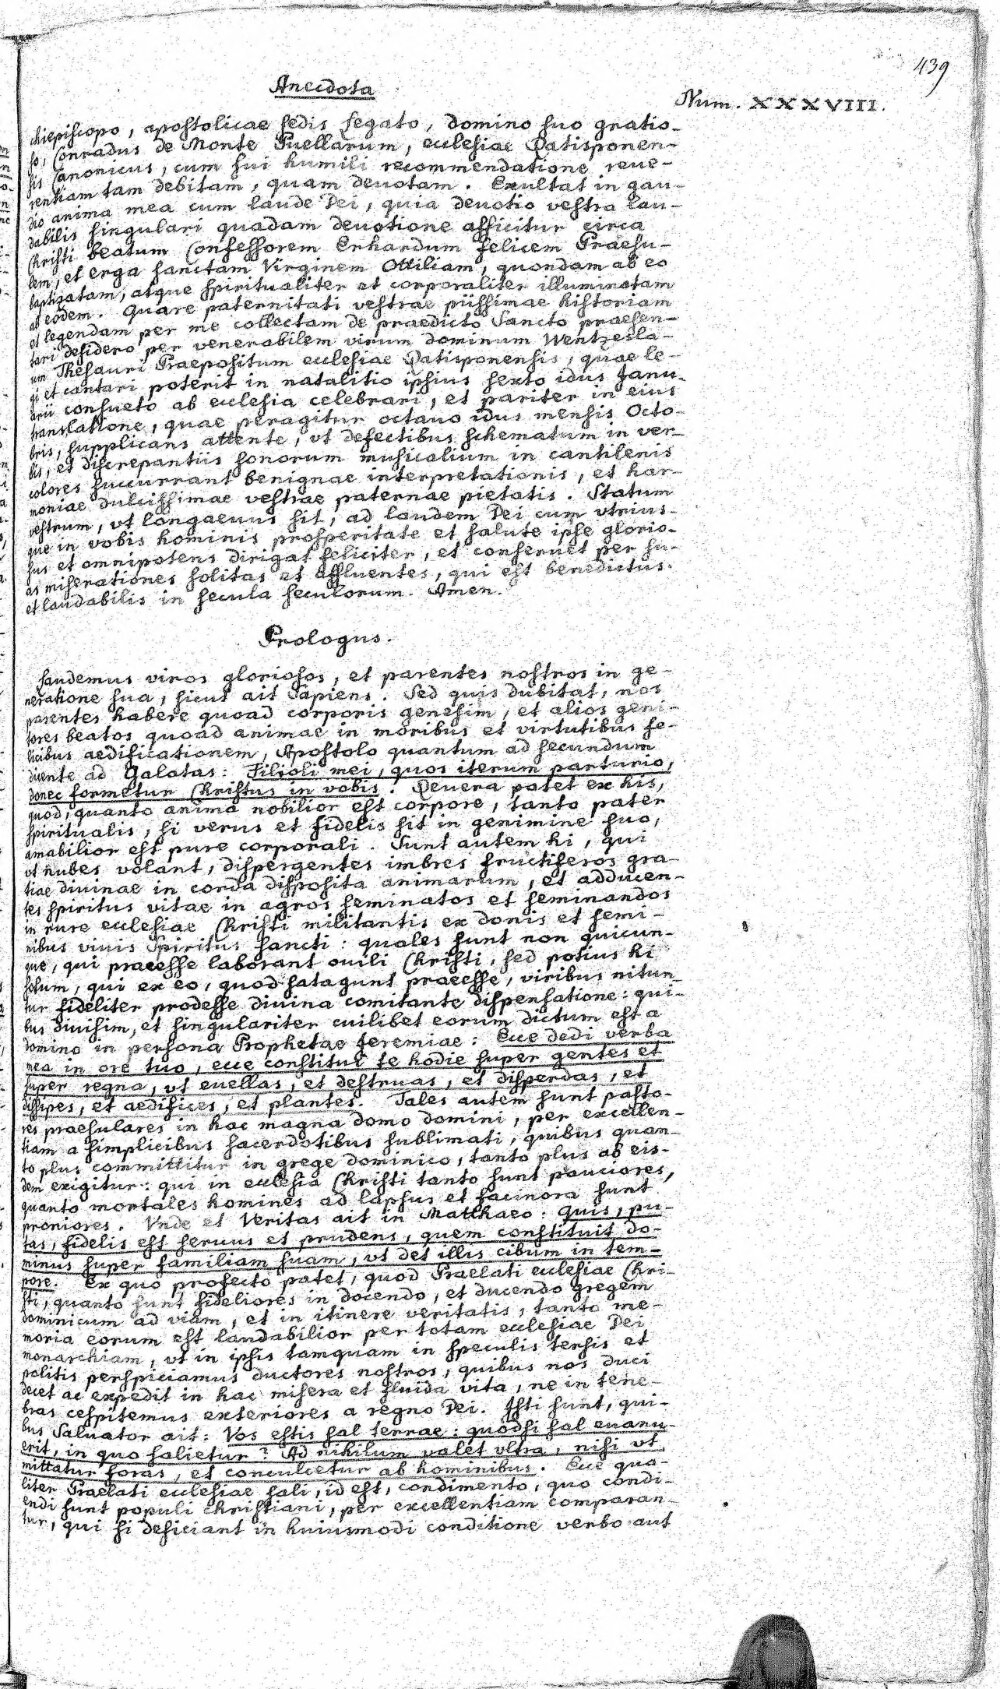 439
Anecdota
Num. XXXVIII.
chiepiscopo, apostolicae sedis Legato, domino suo gratio-
so, Conradus de Monte Puellarum, ecclesiae Ratisponen-
sis Canonicus, cum sui humili recommendatione reue-
rentiam tam debitam, quam deuotam. Exultat in gau-
dio anima mea cum laude Dei, quia deuotio vestra lau-
dabilis singulari quadam deuotione afficitur circa
Christi beatum Confessorem Erhardum felicem Praesu-
lem, et erga sanctam Virginem Ottiliam, quondam ab eo
baptizatam, atque spiritualiter et corporaliter illuminatam
ab eodem. Quare paternitati vestrae piissimae historiam
et legendam per me collectam de praedicto Sancto praesen-
tari desidero per venerabilem virum dominum Wentzesla-
um Thesauri Praepositum ecclesiae Ratisponensis, quae le-
gi et cantari poterit in natalitio ipsius sexto idus Janu-
arii consueto ab ecclesia celebrari, et pariter in eius
translatione, quae peragitur octauo idus mensis Octo-
bris, supplicans attente, vt defectibus schematum in ver-
bis, et discrepantiis sonorum musicalium in cantilenis
colores succurrant benignae interpretationis, et har-
moniae dulcissimae vestrae paternae pietatis. Statum
vestrum, vt longaeuus sit, ad laudem Dei cum vtrius-
que in vobis hominis prosperitate et salute ipse glorio-
sus et omnipotens dirigat feliciter, et conseruet per su-
as miserationes solitas et affluentes, qui est benedictus.
et laudabilis in secula seculorum. Amen.
Prologus.
Laudemus viros gloriosos, et parentes nostros in ge-
neratione sua, sicut ait Sapiens. Sed quis dubitat, nos
parentes habere quoad corporis genesim, et alios geni-
tores beatos quoad animae in moribus et virtutibus fe-
licibus aedificationem, Apostolo quantum ad secundum
dicente ad Galatas: Filioli mei, quos iterum parturio,
donec formetur Christus in vobis. Reuera patet ex his,
quod, quanto anima nobilior est corpore, tanto pater
spiritualis, si verus et fidelis sit in genimine suo,
amabilior est pure corporali. Sunt autem hi, qui
vt nubes volant, dispergentes imbres fructiferos gra-
tiae diuinae in corda disposita animarum, et adducen-
tes spiritus vitae in agros seminatos et seminandos
in rure ecclesiae Christi militantis ex donis et semi-
nibus viuis Spiritus sancti: quales sunt non quicun-
que, qui praeesse laborant ouili Christi, sed potius hi
solum, qui ex eo, quod satagunt praeesse, viribus nitun
tur fideliter prodesse diuina comitante dispensatione: qui-
bus diuisim, et singulariter cuilibet eorum dictum est a
domino in persona Prophetae Jeremiae: Ecce dedi verba
mea in ore tuo, ecce constitui te hodie super gentes et
super regna, vt euellas, et destruas, et disperdas, et
dissipes, et aedifices, et plantes. Tales autem sunt pasto-
res praesulares in hac magna domo domini, per excellen-
tiam a simplicibus sacerdotibus sublimati, quibus quan-
to plus committitur in grege dominico, tanto plus ab eis-
dem exigitur: qui in ecclesia Christi tanto sunt pauciores,
quanto mortales homines ad lapsus et facinora sunt
proniores. Vnde et Veritas ait in Matthaeo: Quis, pu-
tas, fidelis est seruus et prudens, quem constituit do-
minus super familiam suam, vt det illis cibum in tem-
pore. Ex quo profecto patet, quod Praelati ecclesiae Chri-
sti, quanto sunt fideliores in docendo, et ducendo gregem
dominicum ad viam, et in itinere veritatis, tanto me-
moria eorum est laudabilior per totam ecclesiae Dei
monarchiam, vt in ipsis tamquam in speculis tersis et
politis perspiciamus ductores nostros, quibus nos duci
decet ac expedit in hac misera et fluida vita, ne in tene-
bras cespitemus exteriores a regno Dei. Isti sunt, qui-
bus Saluator ait: Vos estis sal terrae: quodsi sal euanu-
erit, in quo salietur? Ad nihilum valet vltra, nisi vt
mittatur foras, et conculcetur ab hominibus. Ecce qua-
liter Praelati ecclesiae sali, id est, condimento, quo condi-
endi sunt populi christiani, per excellentiam comparan-
tur, qui si deficiant in huiusmodi conditione verbo aut